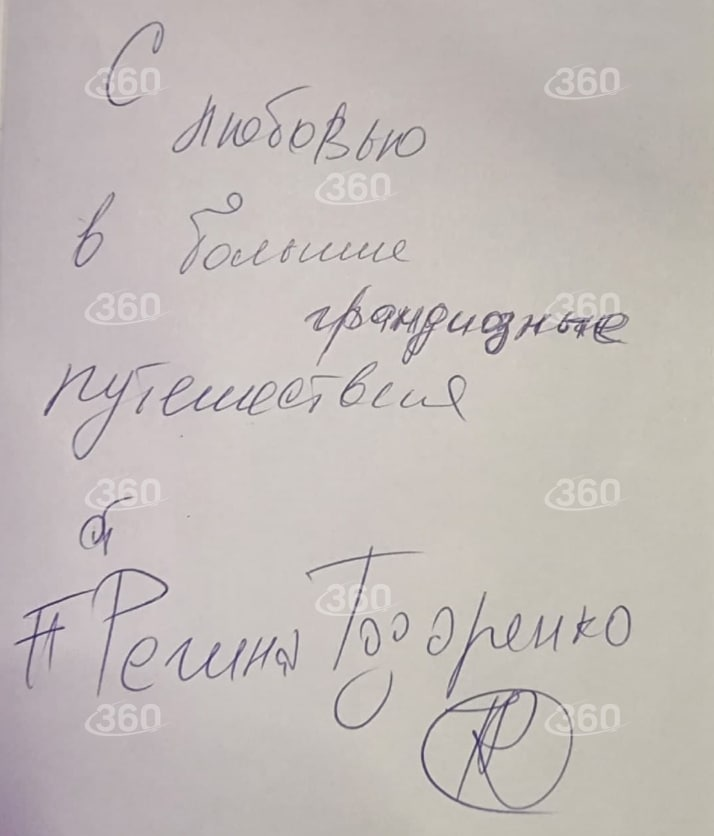 С
360 360
любовью
360
в большие
360 грандиозные 360
путешествия
360 360
от
360
#Регина Тодоренко
360 360